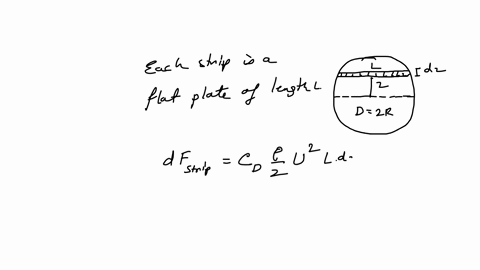 Each strip is a
flat plate of length L
L
dz
z
D = 2R
dF_strip = C_D ρ/2 U² L.d-